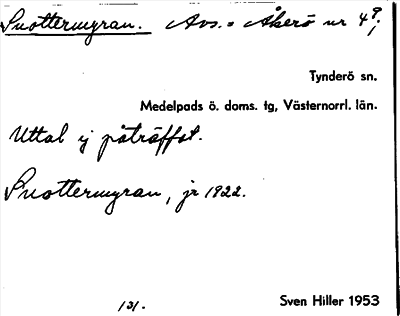 Snottermyran. Avs. = Åkerö nr 4?;
Tynderö sn.
Medelpads ö. doms. tg, Västernorrl. län.
Uttal ej påträffat.
Snottermyran, jr 1922.
121.
Sven Hiller 1953